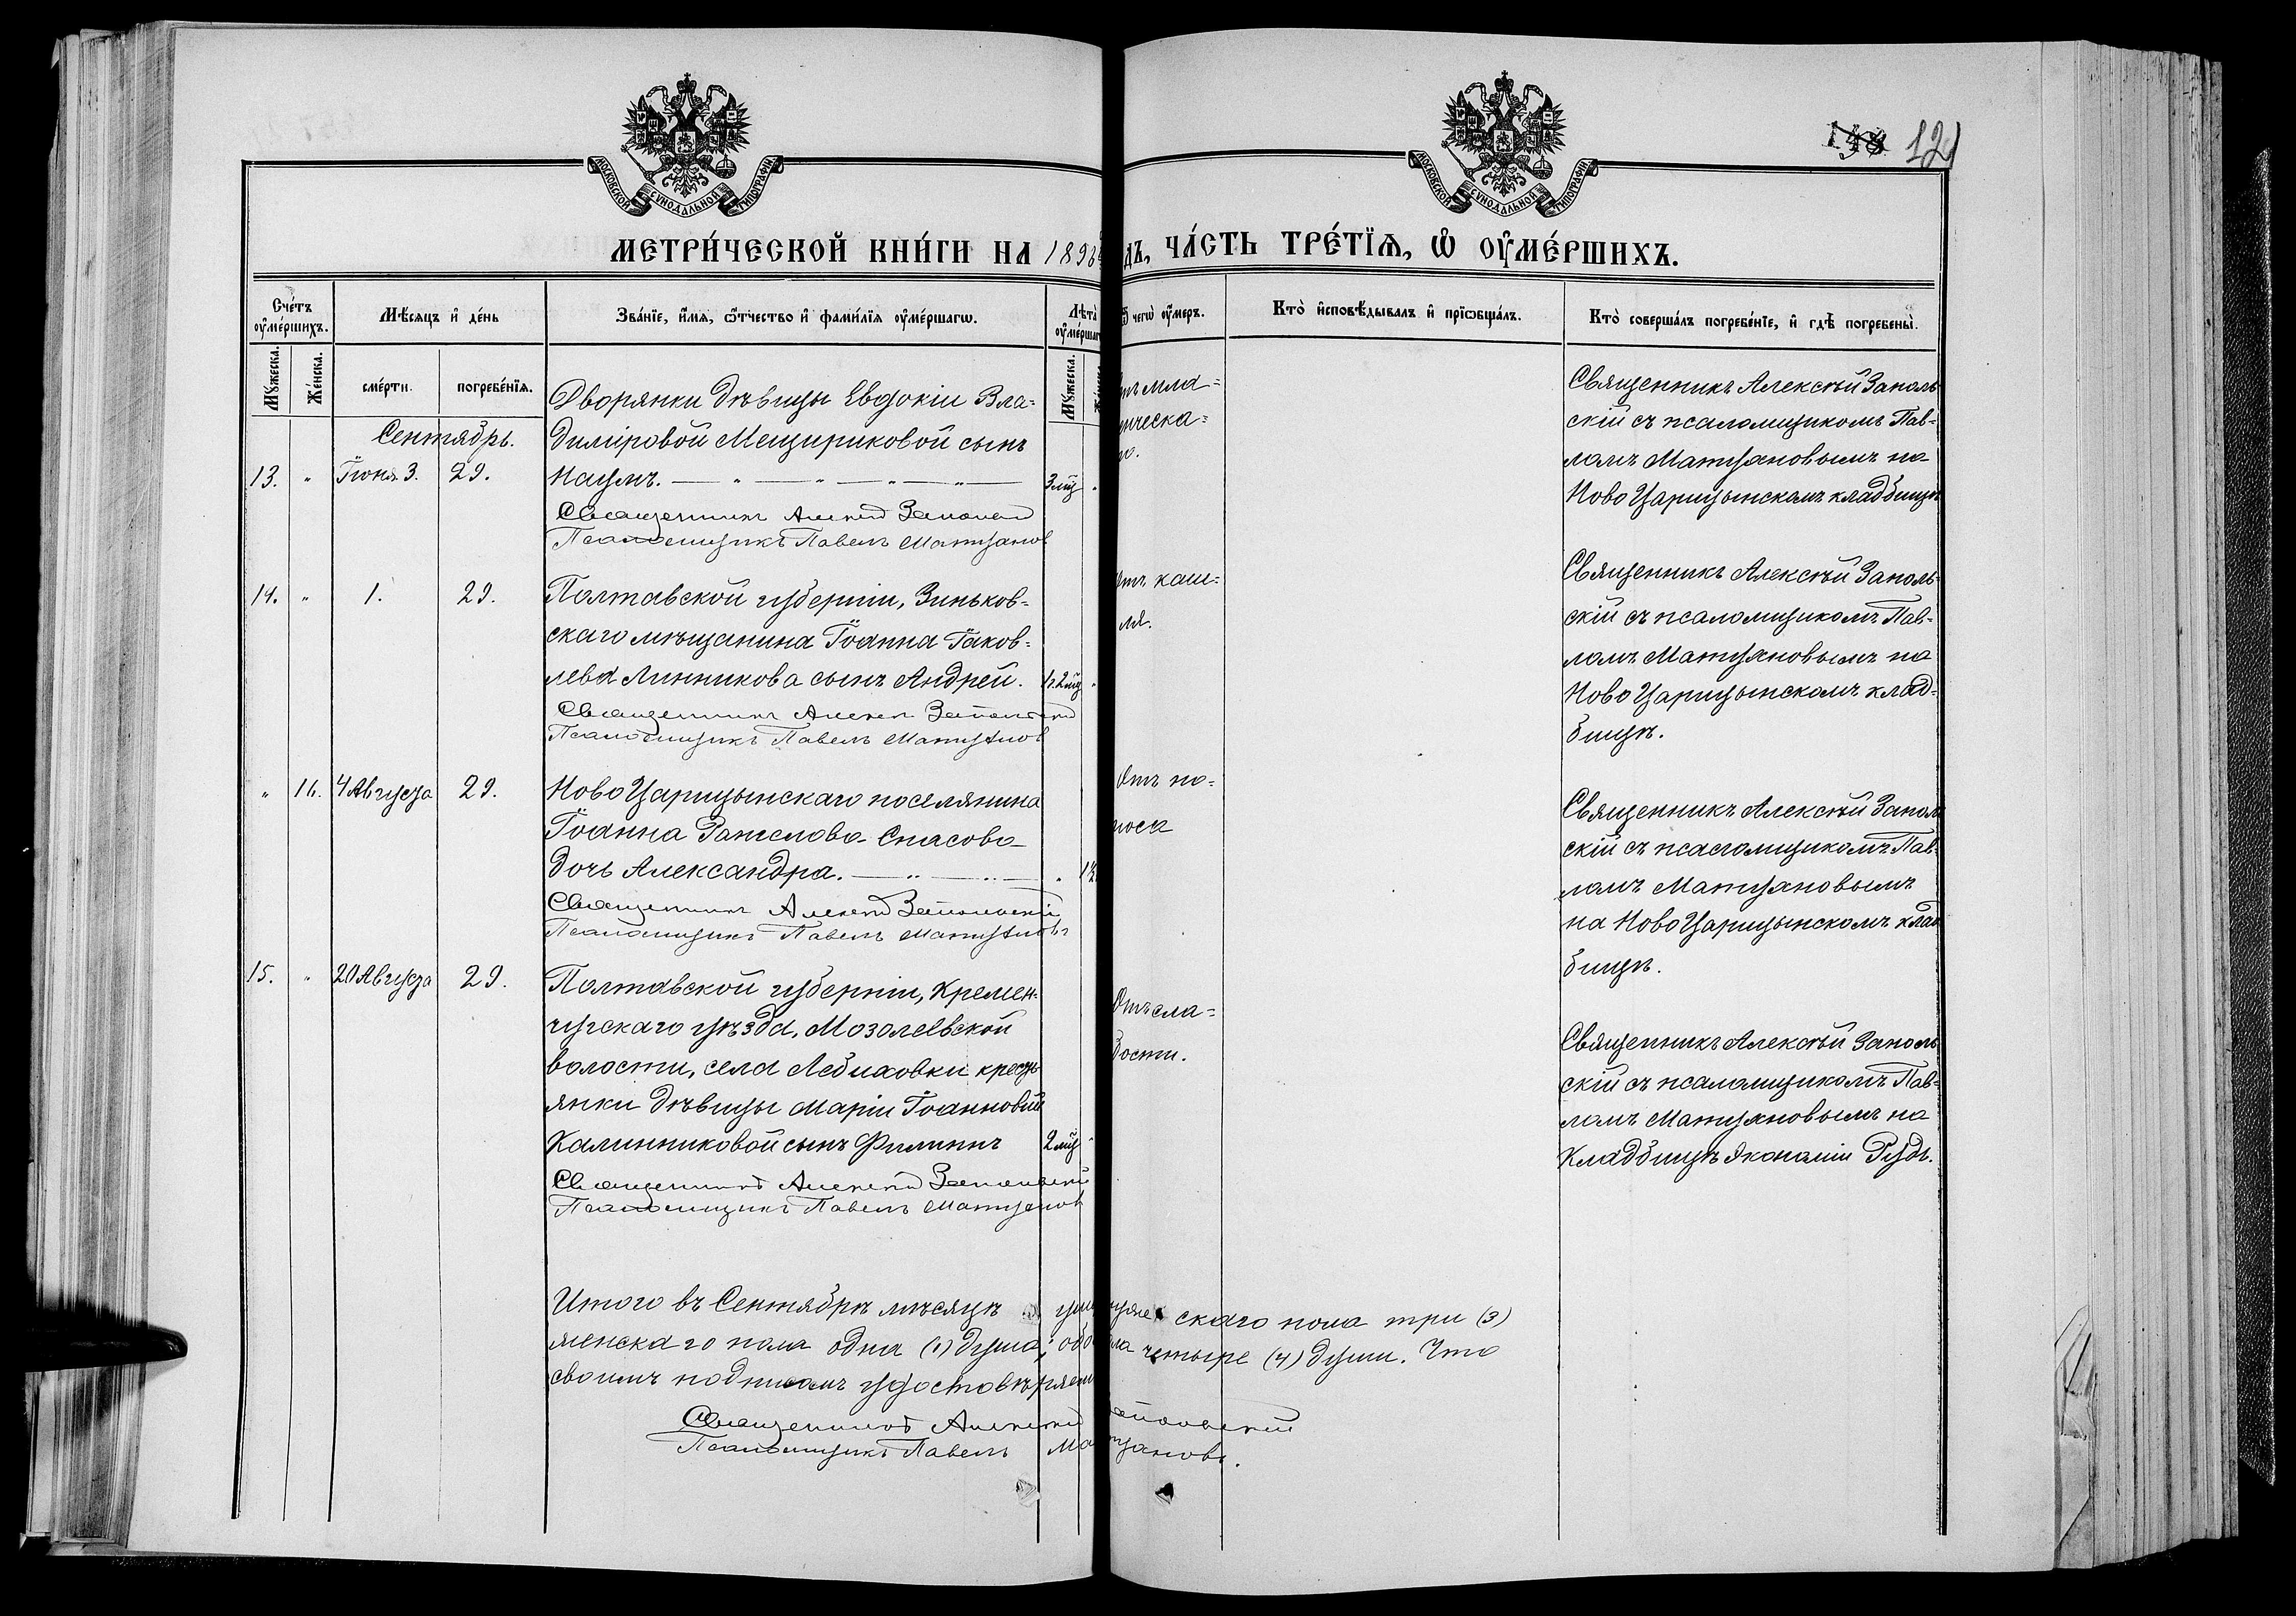 148 121
МОСКОВСКОЙ СѴНОДАЛЬНОЙ ТИПОГРАФІИ
МОСКОВСКОЙ СѴНОДАЛЬНОЙ ТИПОГРАФІИ
МЕТРИ́ЧЕСКОЙ КНИ́ГИ НА 1898
дъ, ЧА́СТЬ ТРЕ́ТЇѦ, Ѡ҆ ОУ҆МЕ́РШИХЪ.
Сче́тъ оу҆ме́ршихъ.
Мѣ́сяцъ и҆ де́нь
Зва́нїе, и҆́мѧ, ѻ҆́тчество и҆ фами́лїѧ оу҆ме́ршагѡ.
Лѣта̀ оу҆ме́ршаг
Ѿ чегѡ̀ оу҆́меръ.
Кто̀ и҆сповѣ́дывалъ и҆ прїѡбща́лъ.
Кто̀ соверша́лъ погребе́нїе, и҆ гдѣ̀ погребены̀.
Мꙋ́жеска.
Же́нска.
сме́рти.
погребе́нїѧ.
Мꙋ́жеска.
Сентябрь.
Дворянки дѣвицы Евдокіи Вла-
диміровой Мещириковой сынъ
13. " Іюня 3. 29. Наумъ. — " — " — " — " — 3 мц "
Священникъ Алексій
Псаломщикъ Павелъ Матцанов
мла-
ческа-
го.
Священникъ Алексѣй Заполь
скій съ псаломщикомъ Пав-
ломъ Матцановымъ на
Ново Царицынскомъ кладбищѣ
14. " 1. 29. Полтавской губерніи, Зиньков-
скаго мѣщанина Іоанна Іаков-
лева Линникова сынъ Андрей. 1г. 2 мц "
Священникъ Алексій Запольскій
Псаломщикъ Павелъ Матцанов
Отъ каш-
ля.
Священникъ Алексѣй Заполь-
скій съ псаломщикомъ Пав-
ломъ Матцановымъ на
Ново Царицынскомъ клад-
бищѣ.
" 16. 4 Августа 29. Ново Царицынскаго поселянина
Іоанна Рангелова Спасова
дочь Александра. — " — " — "
Священникъ Алексій Запольскій
Псаломщикъ Павелъ Матцановъ
Отъ по-
носа
Священникъ Алексѣй Заполь
скій съ псаломщикомъ Пав-
ломъ Матцановымъ
на Ново Царицынскомъ клад
бищѣ.
15. " 20 Августа 29. Полтавской губерніи, Кремен-
чугскаго уѣзда, Мозолеевской
волости, села Лебиховки кресть
янки дѣвицы Маріи Іоанновой
Калинниковой сынъ Филиппъ 2 мц "
Священникъ Алексій Запольскій
Псаломщикъ Павелъ Матцанов
Отъ сла-
бости.
Священникъ Алексѣй Заполь
скій съ псаломщикомъ Пав-
ломъ Матцановымъ на
Кладбищѣ Экономіи Рудь.
Итого въ Сентябрѣ мѣсяцѣ скаго пола три (3)
женскаго пола одна (1) душа; четыре (4) души. Что
своимъ подписомъ удостовѣряем
Священникъ Алексій Запольскій
Псаломщикъ Павелъ Матцановъ.